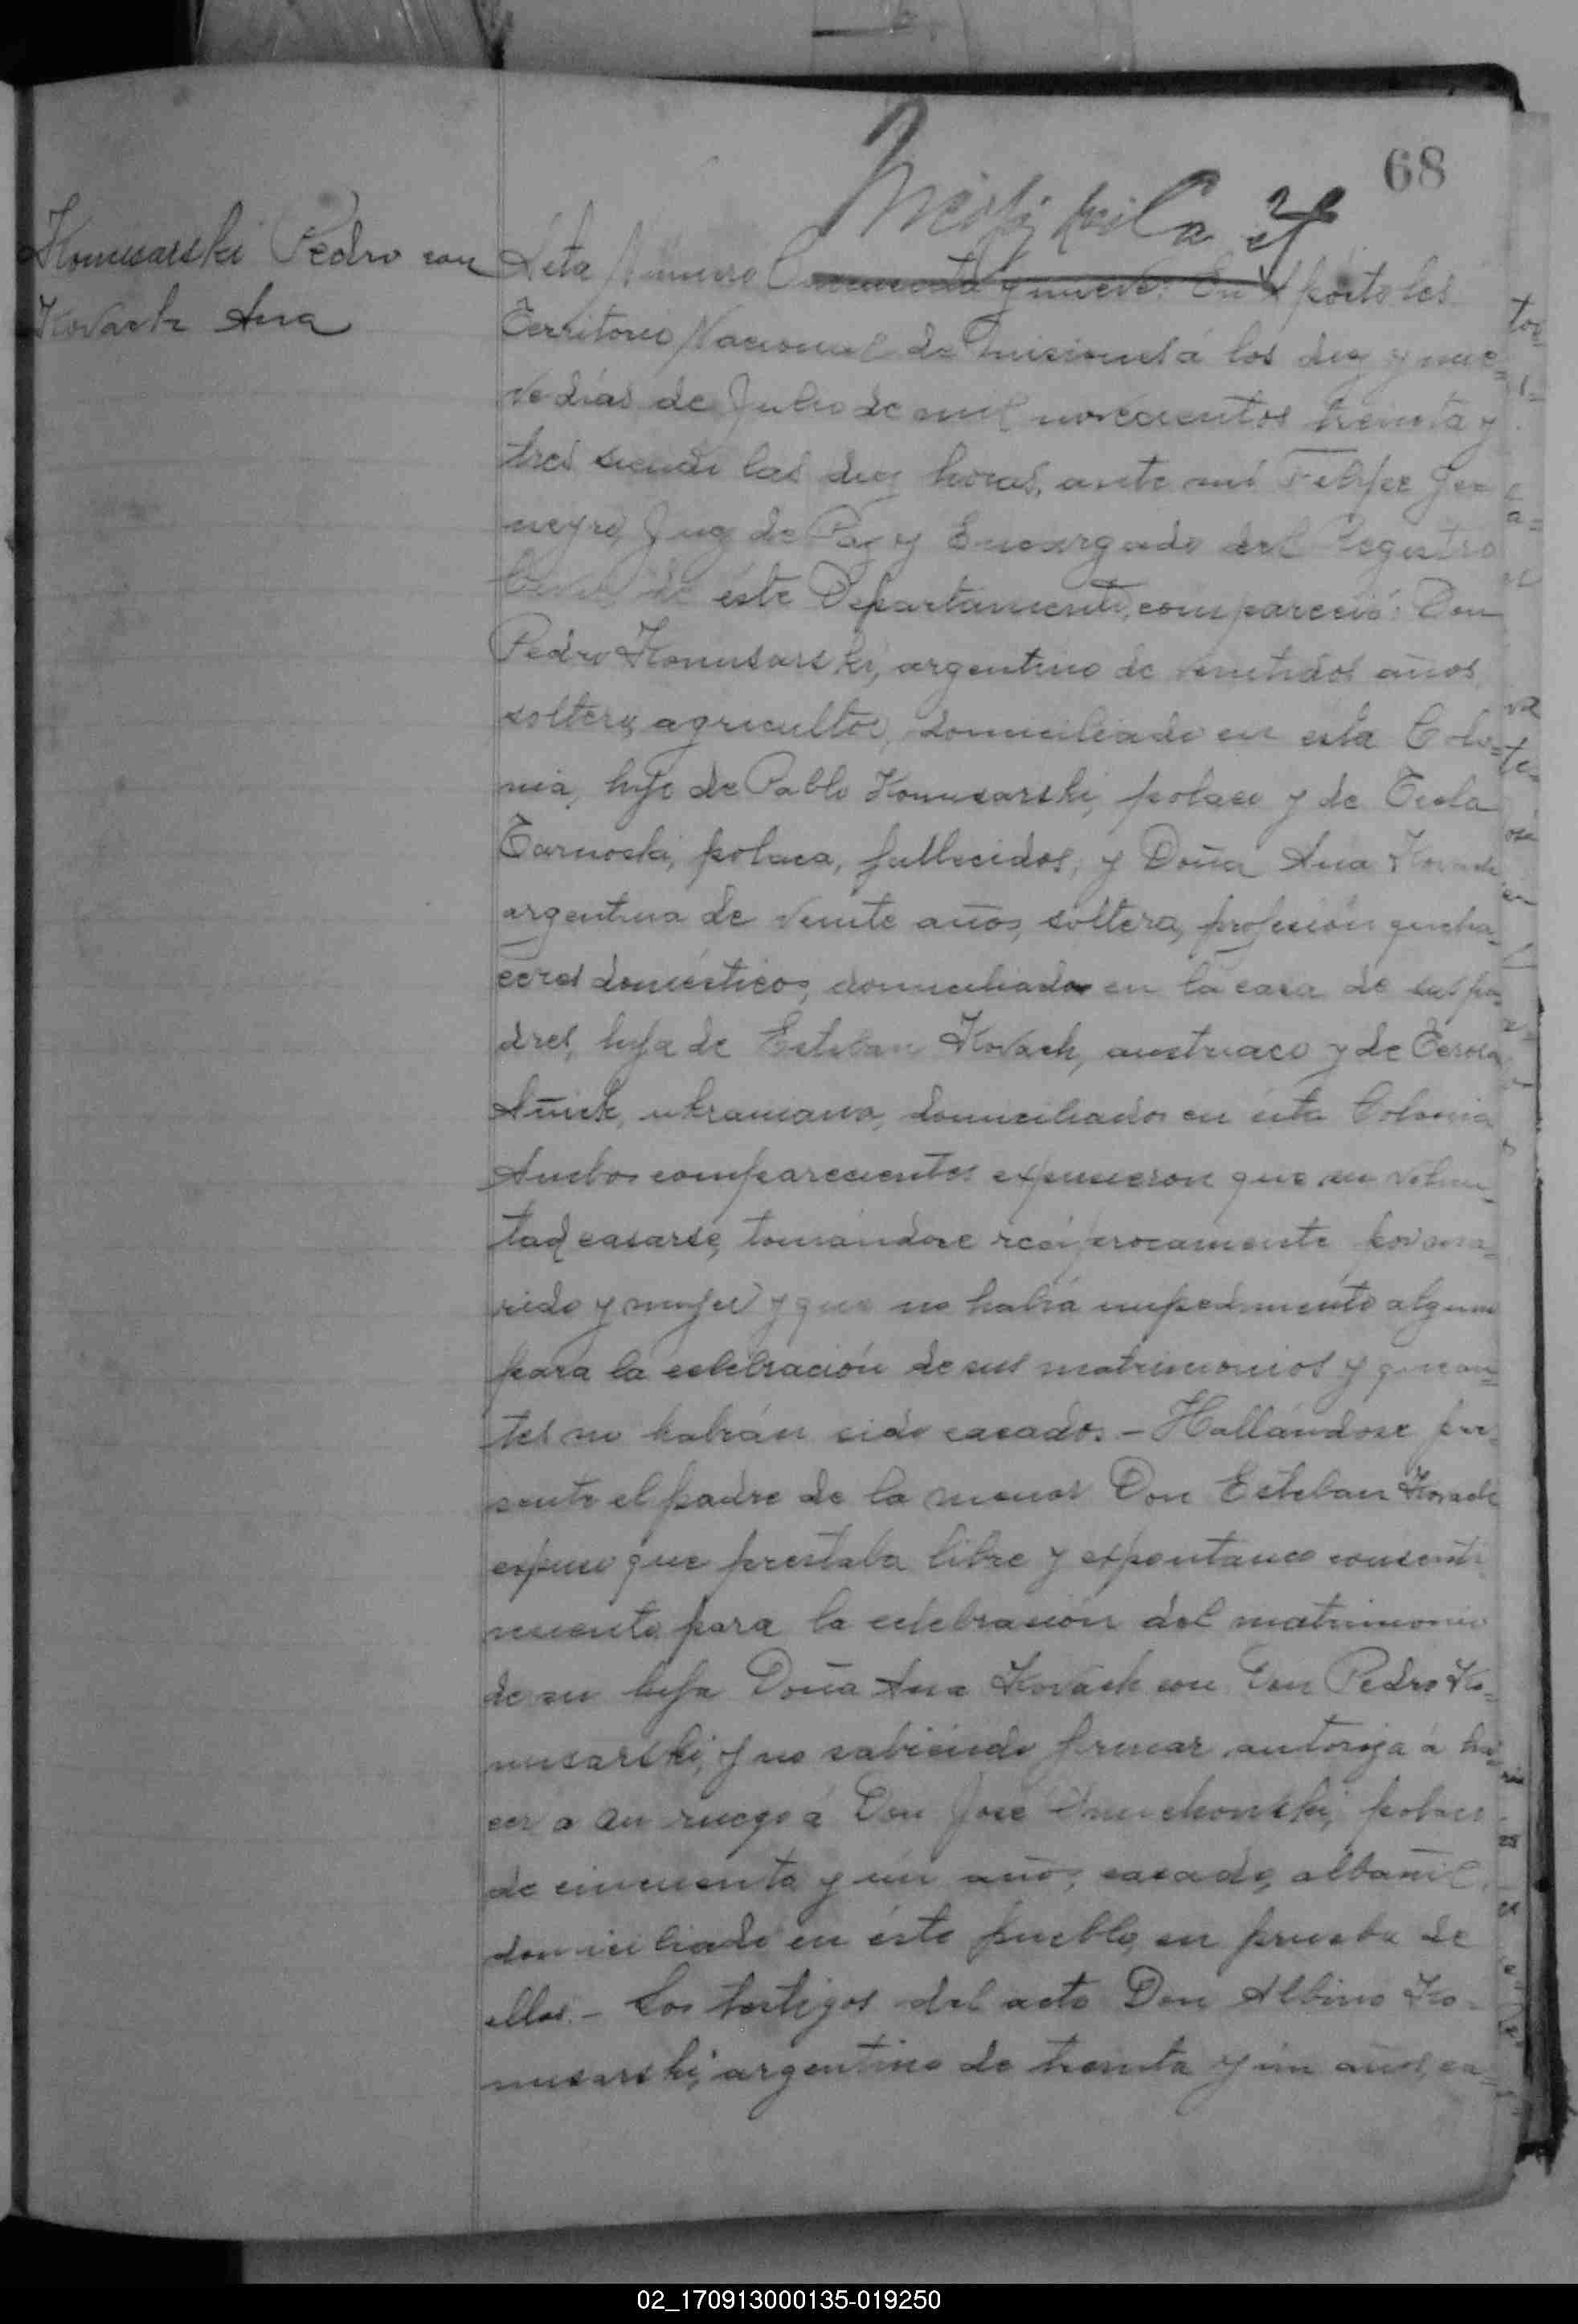 68
Komusarski Pedro con
Kovach Ana
Acta Número Cincuenta y nueve: En Apóstoles
Territorio Nacional de Misiones á los diez y nue-
ve días de Julio de mil novecientos treinta y
tres siendo las diez horas, ante mí Felipe
Juez de Paz y Encargado del Registro
Civil de éste Departamento, compareció: Don
Pedro Komusarski, argentino de veintidos años
soltero, agricultor, domiciliado en esta Colo-
nia, hijo de Pablo Komusarski, polaco y de Tecla
Tarnoski, polaca, fallecidos, y Doña Ana Kovach
argentina de veinte años, soltera, profesión queha-
ceres domésticos, domiciliada en la casa de sus pa-
dres, hija de Esteban Kovach, austriaco y de
ukraniana, domiciliados en ésta Colonia
Ambos comparecientes expusieron que su volun-
tad casarse, tomándose recíprocamente por ma-
rido y mujer y que no había impedimento alguno
para la celebración de sus matrimonios y que an-
tes no habían sido casados. - Hallándose pre-
sente el padre de la menor Don Esteban Kovach
expuso que prestaba libre y espontaneo consenti-
miento para la celebrasión del matrimonio
de su hija Doña Ana Kovach con Don Pedro Ko-
musarski, y no sabiendo firmar autoriza á ha-
cer a su ruego á Don José polaco
de cincuenta y un años, casado, albañil,
domiciliado en éste pueblo, en prueba de
ellos. - Los testigos del acto Don Albino Ko-
musarski, argentino de treinta y un años, ca-
02_170913000135-019250